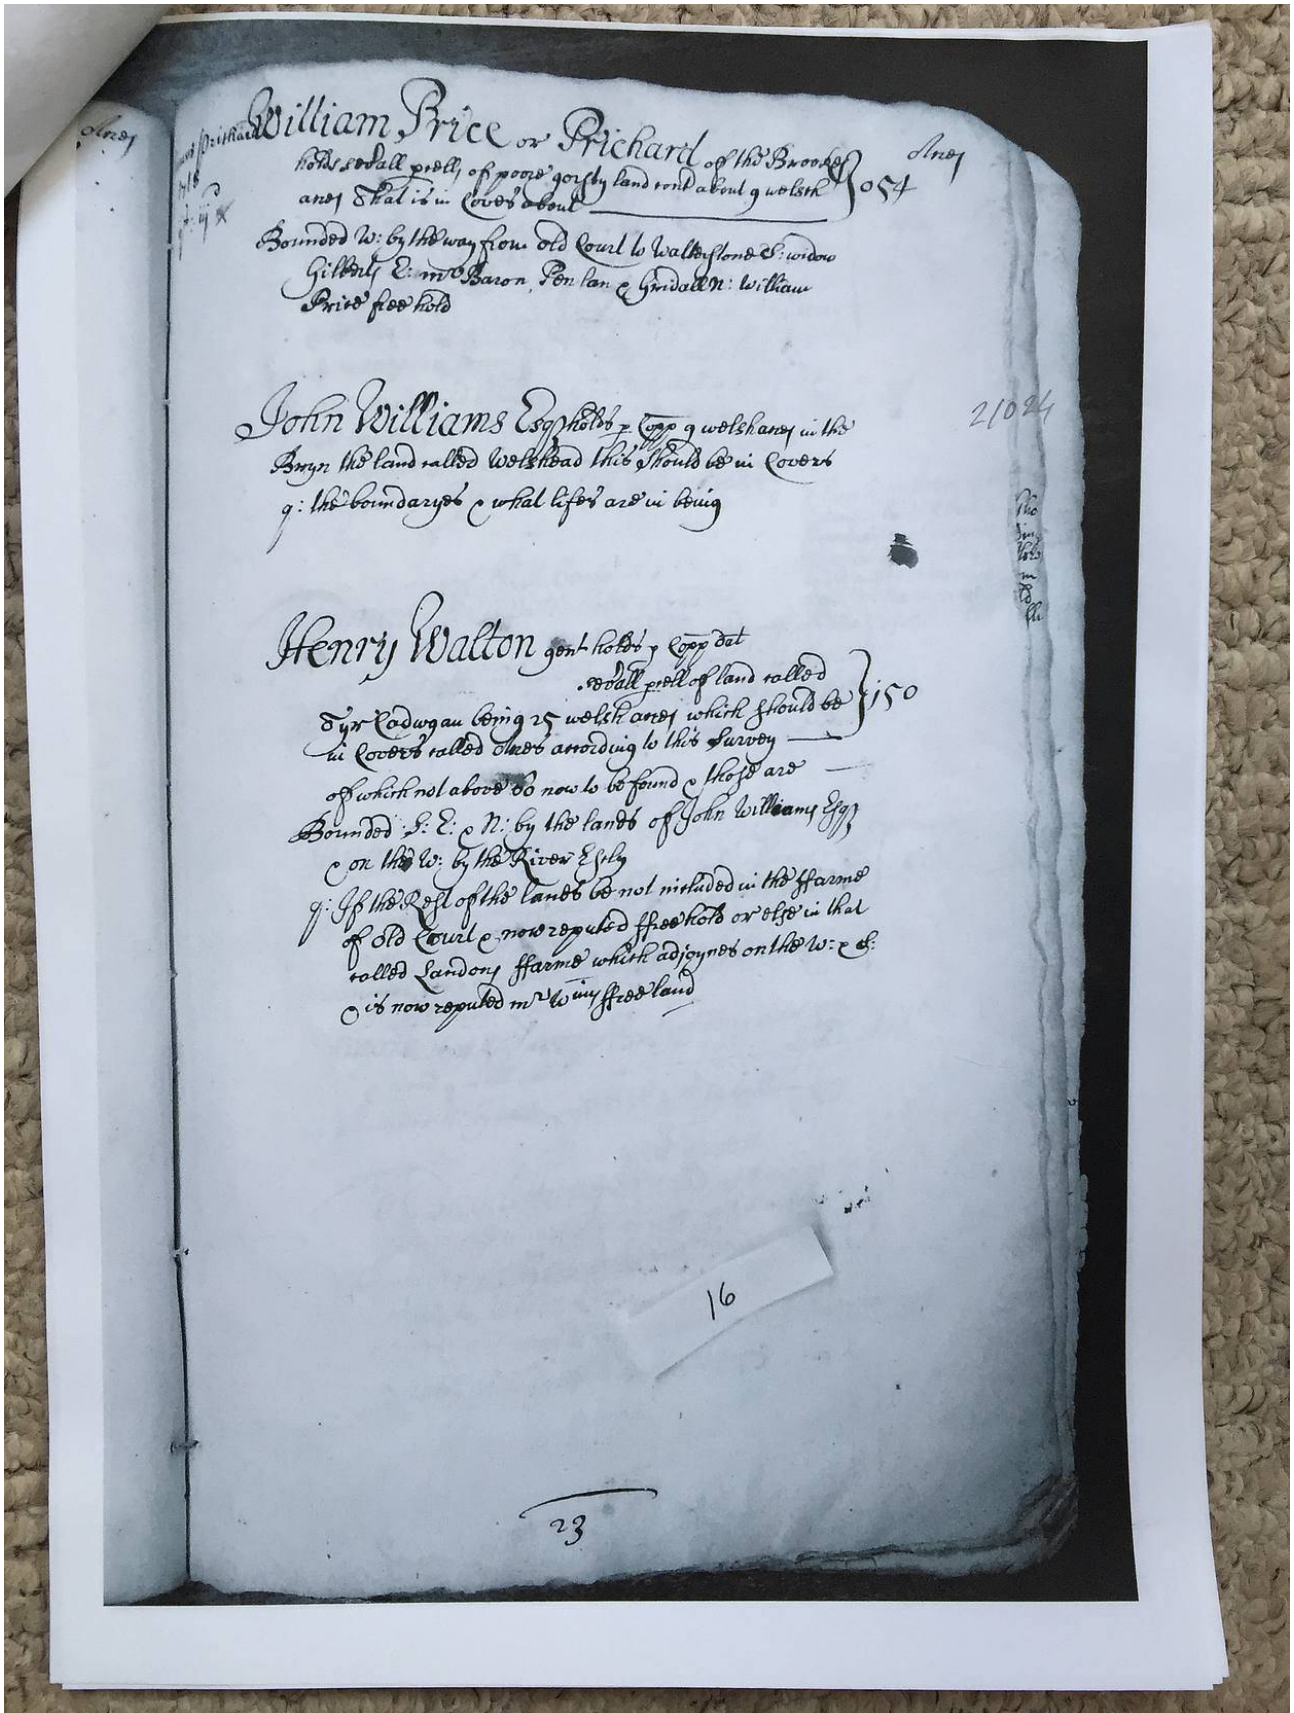 Acres
Prichard
William Price or Prichard of the Brooke
Acres
holds sevall pcells of poore gorsty land cont about 9 welsh
054
acres That is in Covers about
Bounded W: by the way from old Court to Walterstone S: widow
Gilberts E: mr Baron, Pen lan & N: William
Price free hold
John Williams Esqr holds p Copp 9 welsh acres in the
21024
Bryn the land called Welshead this should be in Covers
q: the boundaryes & what lifes are in being
Henry Walton gent holds p Copp dat
sevall pcell of land called
Tyr Cadwgan being 25 welsh acres which should be
150
in Covers called Acres according to this Survey
of which not above 80 now to be found & those are
Bounded S: E: & N: by the lands of John Williams Esqr
& on the W: by the River Escly
q: If the Rest of the lands be not included in the ffarme
of old Court & now reputed ffree hold or else in that
called Landons ffarme which adjoynes on the W: & S:
& is now reputed mr Wms ffree land
16
23